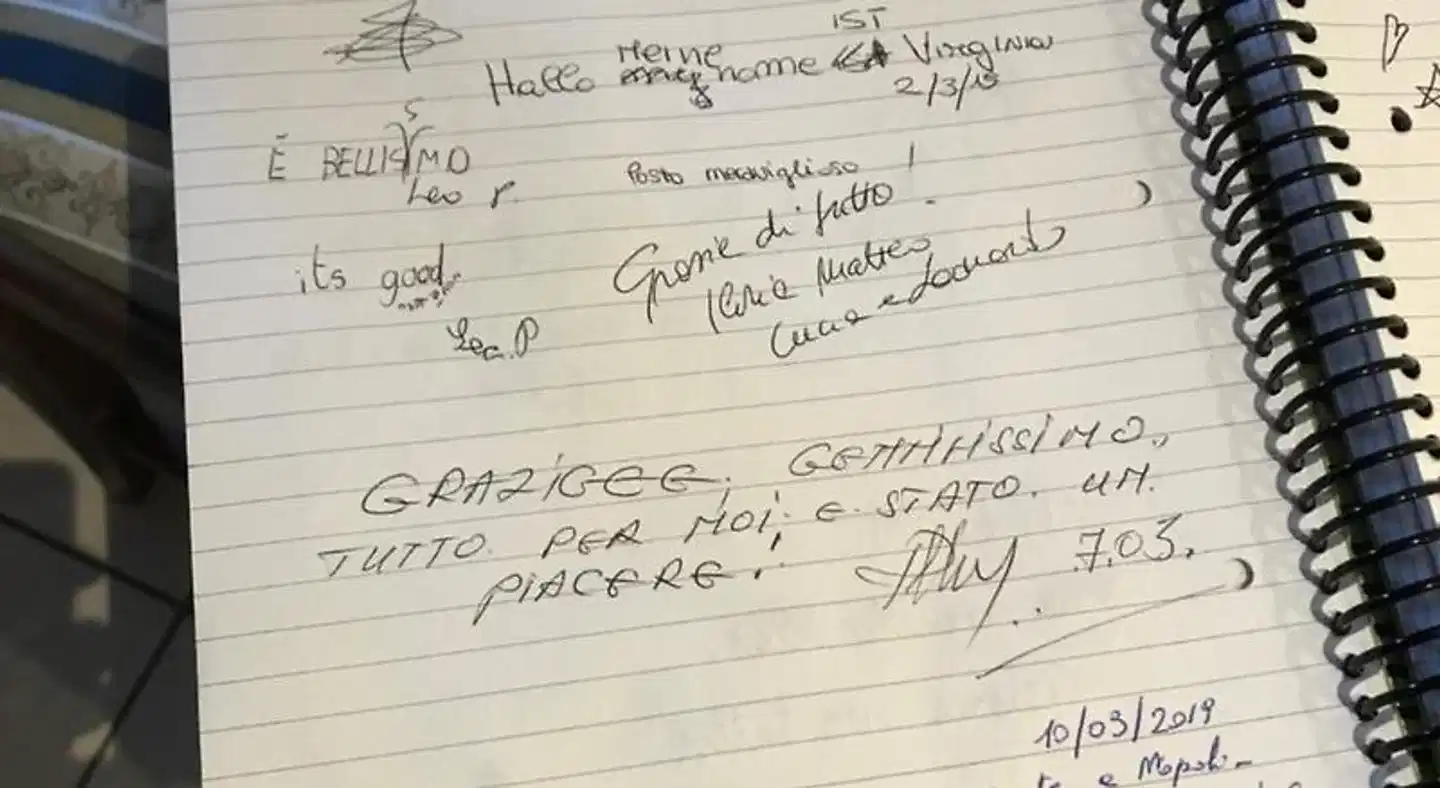 IST
Meine
Hallo name Virginia
2/3/19
É BELLISSIMO
Leo P.
Posto meraviglioso !
Grazie di tutto.
Ilaria Matteo
Luca e Leonardo
its good
Leo.P
GRAZIGEE; GENTILISSIMO.,
TUTTO. PER NOI; E. STATO. UN.
PIACERE!
7.03.
10/03/2019
e Napoli